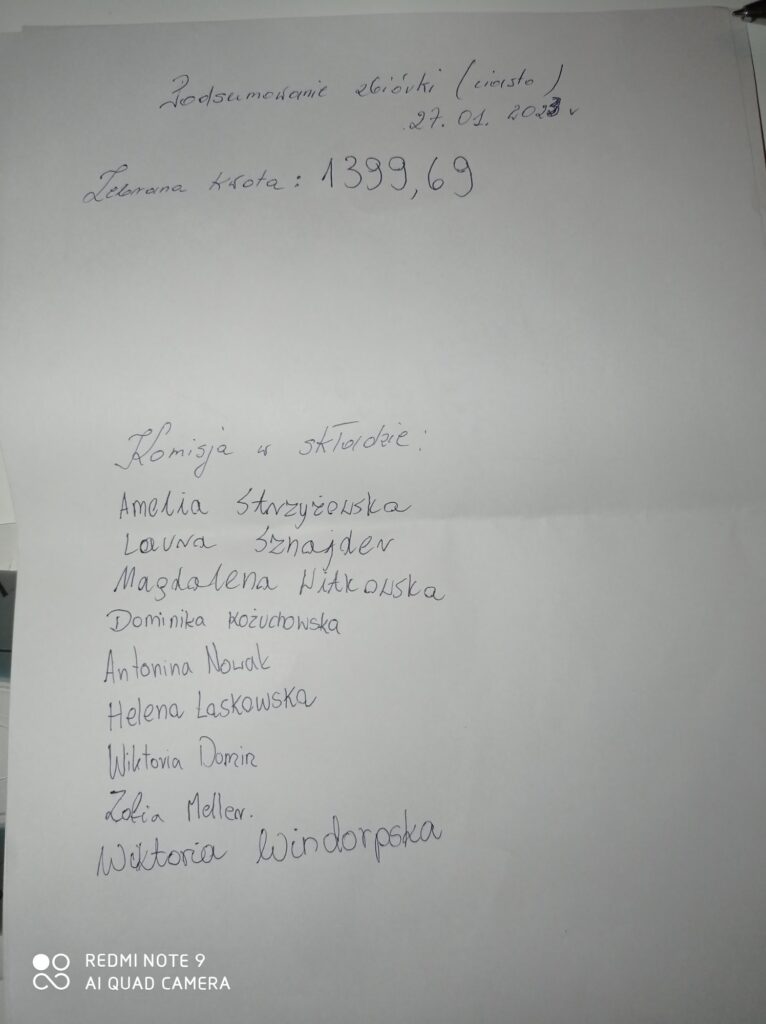 Podsumowanie zbiórki (ciasto)
27.01.2023 r
Zebrana kwota: 1399,69
Komisja w składzie:
Amelia Strzyżewska
Laura Sznajder
Magdalena Witkowska
Dominika Kożuchowska
Antonina Nowak
Helena Łaskowska
Wiktoria Domin
Zofia Meller.
Wiktoria Windorpska
REDMI NOTE 9
AI QUAD CAMERA